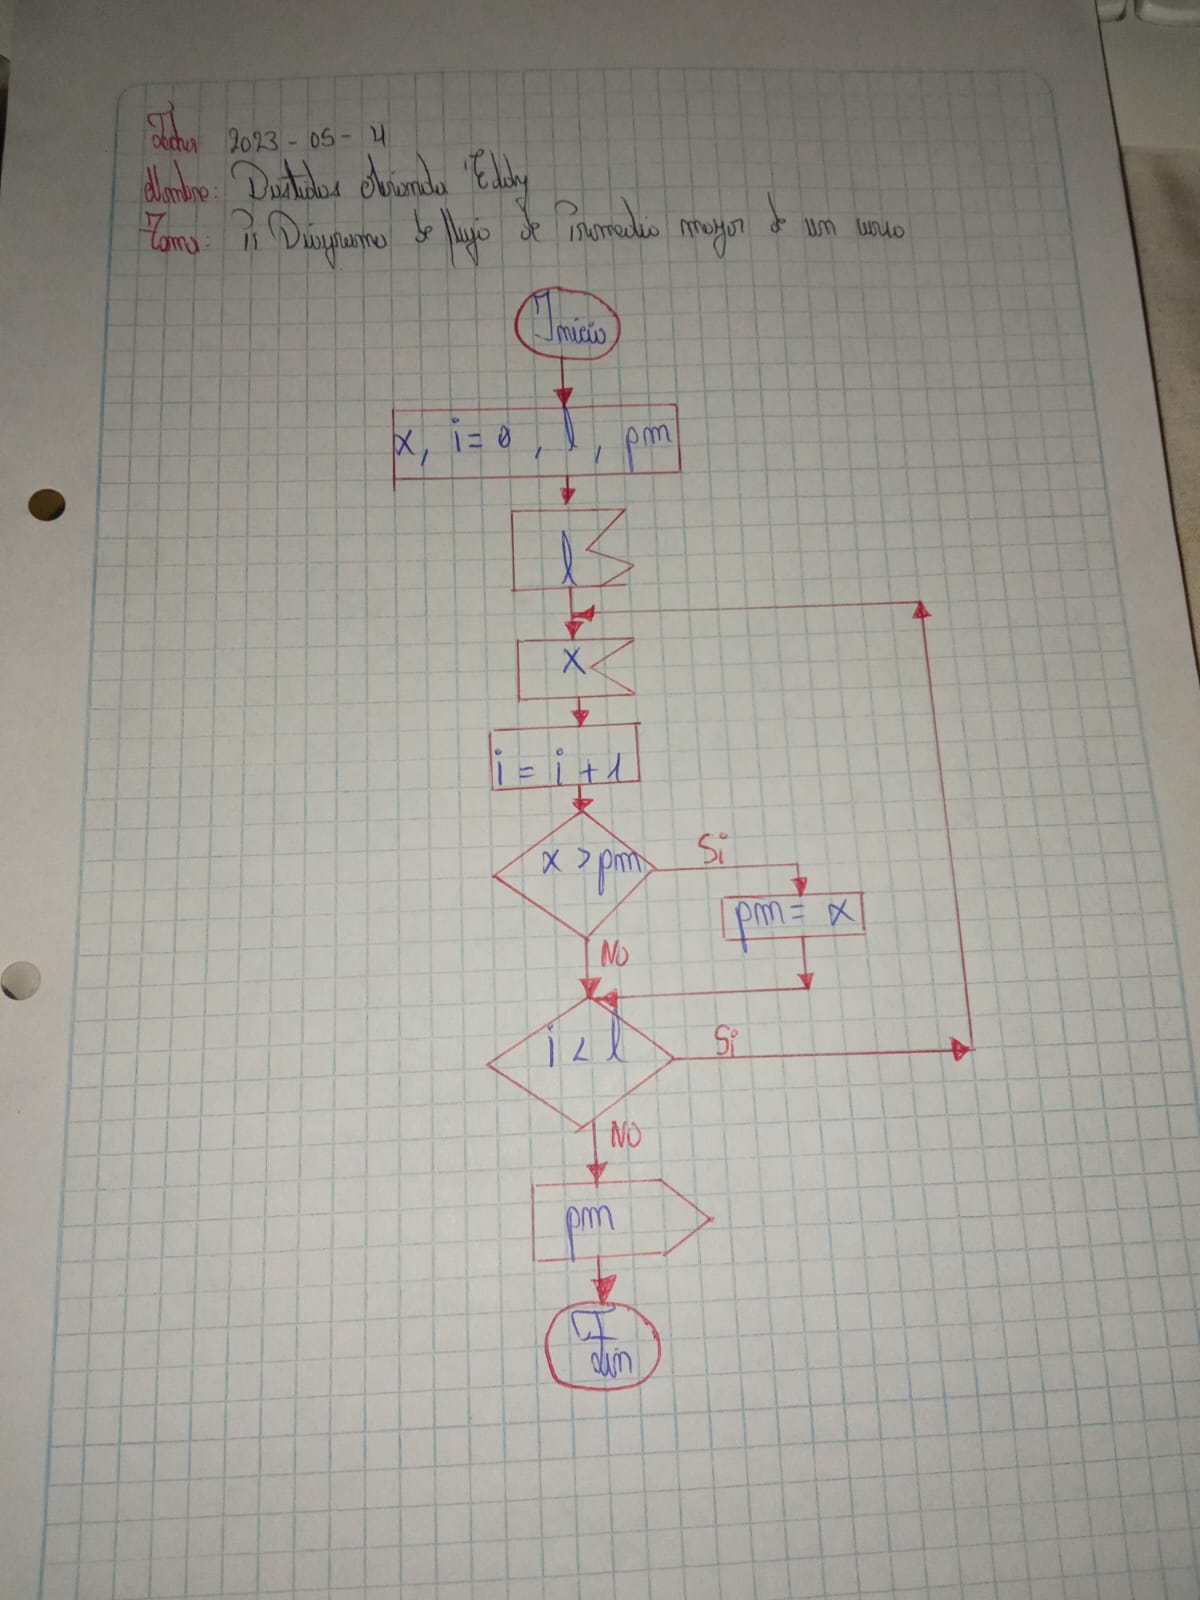 Fecha 2023-05-4
Nombre: Eddy
Tema: Diagrama de flujo de Promedio mayor de un curso
Inicio
x, i=0, l, pm
l
x
i = i + 1
x > pm
Si
pm = x
NO
i < l
Si
NO
pm
Fin